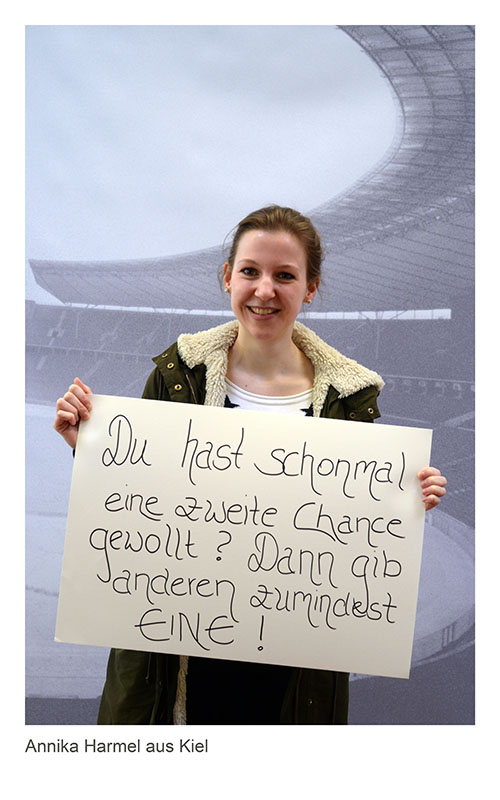 Du hast schonmal
eine zweite Chance
gewollt? Dann gib
anderen zumindest
EINE!
Annika Harmel aus Kiel